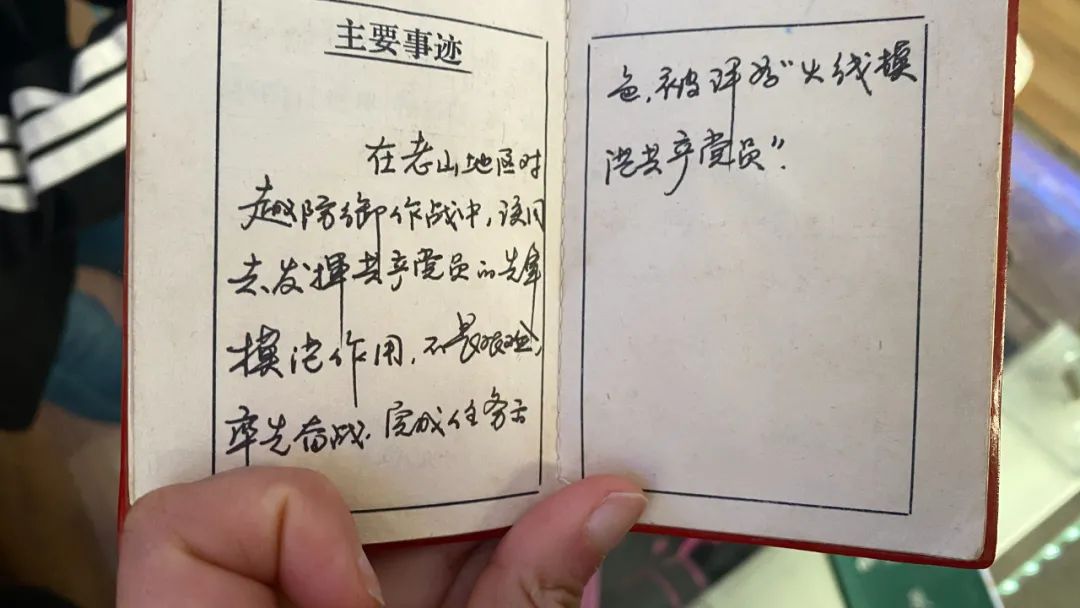 主要事迹
在老山地区对
越防御作战中,该同
志发挥共产党员的先锋
模范作用,不畏艰难,
率先奋战.完成任务出
色,被评为"火线模
范共产党员".